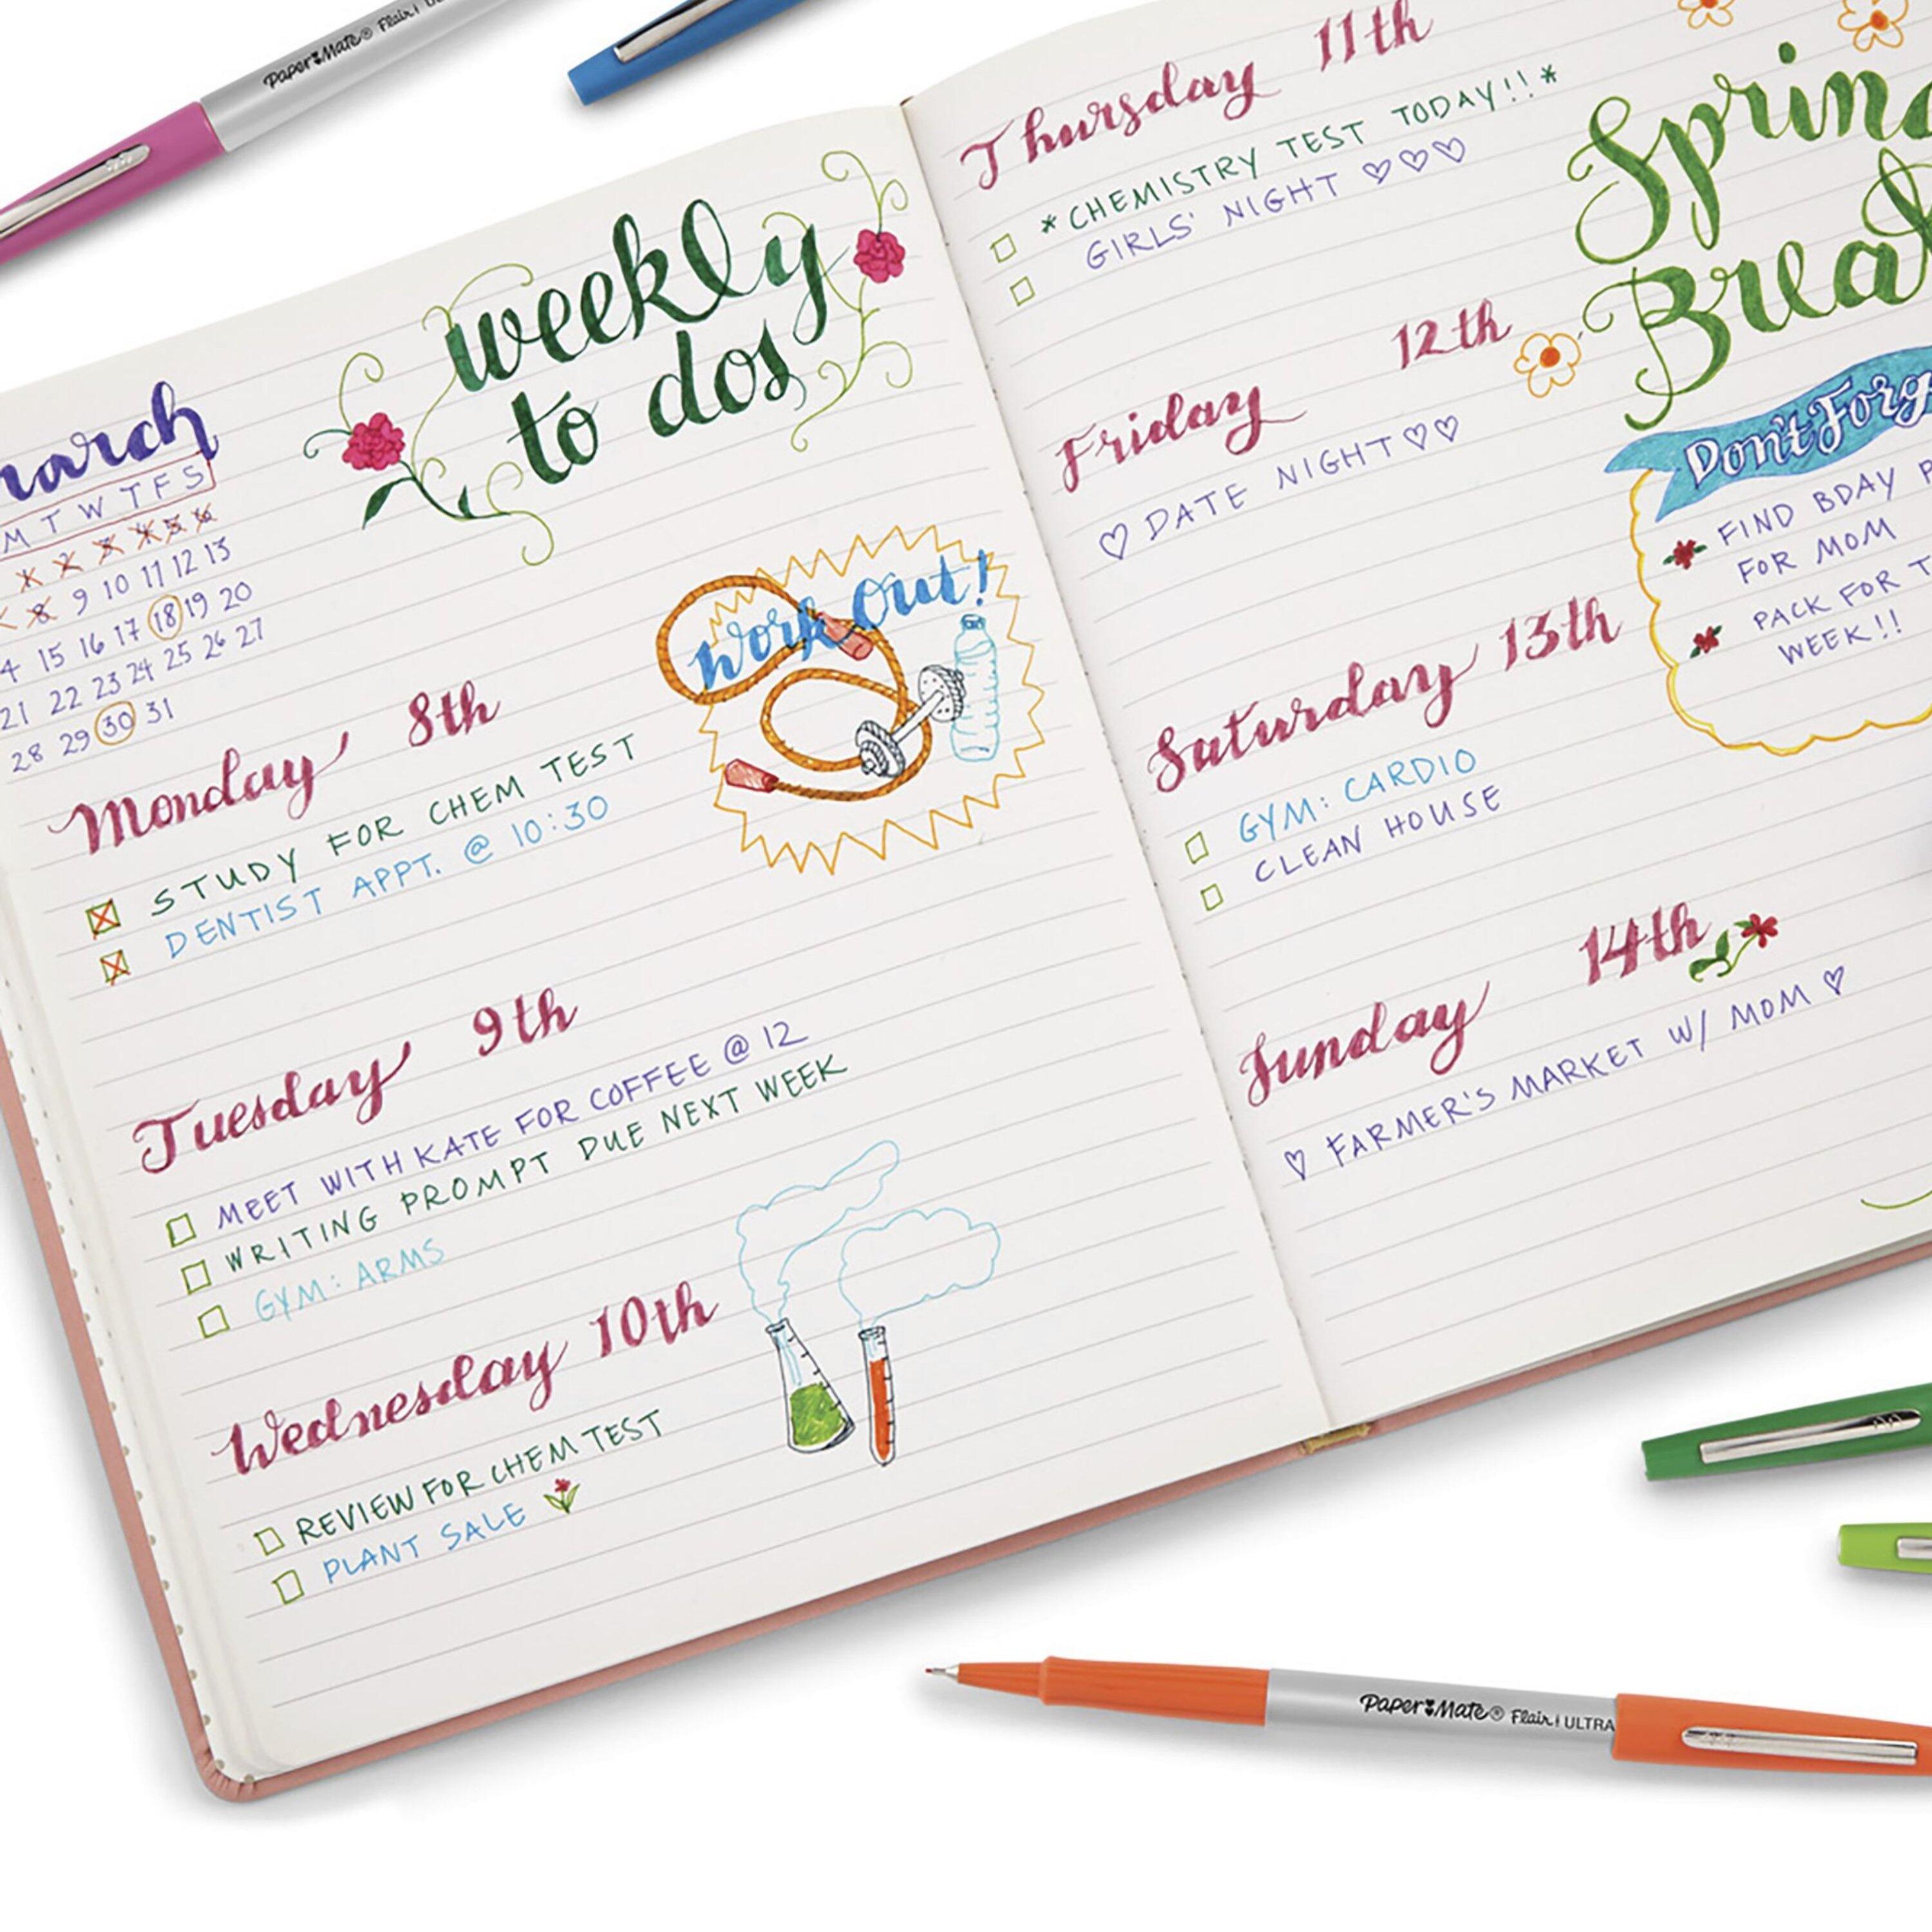 Paper Mate® Flair!
weekly
to dos
M T W T F S
9 10 11 12 13
15 16 17 18 19 20
21 22 23 24 25 26 27
28 29 30 31
work out!
Monday 8th
STUDY FOR CHEM TEST
DENTIST APPT. @ 10:30
Tuesday 9th
MEET WITH KATE FOR COFFEE @ 12
WRITING PROMPT DUE NEXT WEEK
GYM: ARMS
Wednesday 10th
REVIEW FOR CHEM TEST
PLANT SALE
Thursday 11th
*CHEMISTRY TEST TODAY!!*
GIRLS' NIGHT ♡♡♡
Friday 12th
♡ DATE NIGHT ♡♡
Saturday 13th
GYM: CARDIO
CLEAN HOUSE
Sunday 14th
♡ FARMER'S MARKET W/ MOM ♡
Spring
Don't
FIND BDAY
FOR MOM
PACK FOR
WEEK!!
Paper Mate® Flair! ULTRA